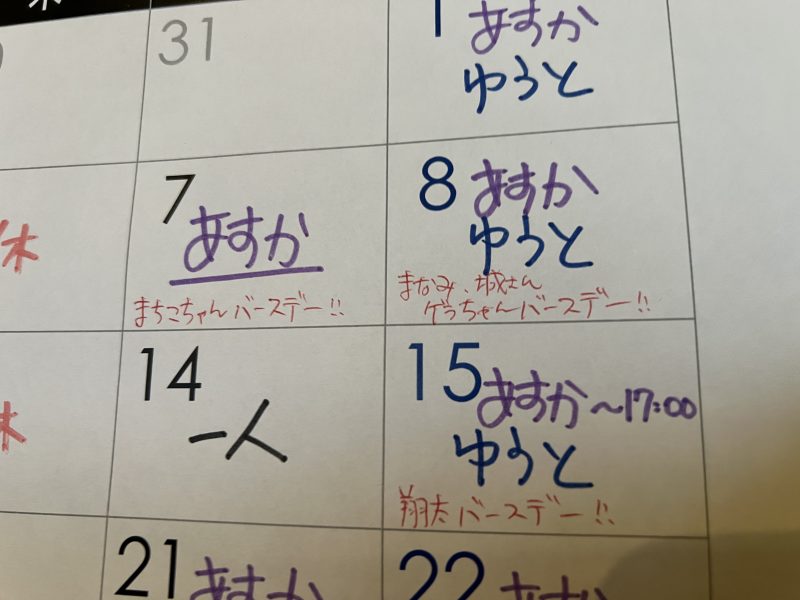 31
1 あすか
ゆうと
7
あすか
まちこちゃんバースデー!!
休
8 あすか
ゆうと
まなみ、城さん
ゲラちゃんバースデー!!
休
14
一人
15 あすか~17:00
ゆうと
翔太バースデー!!
21 あすか
22 あすか